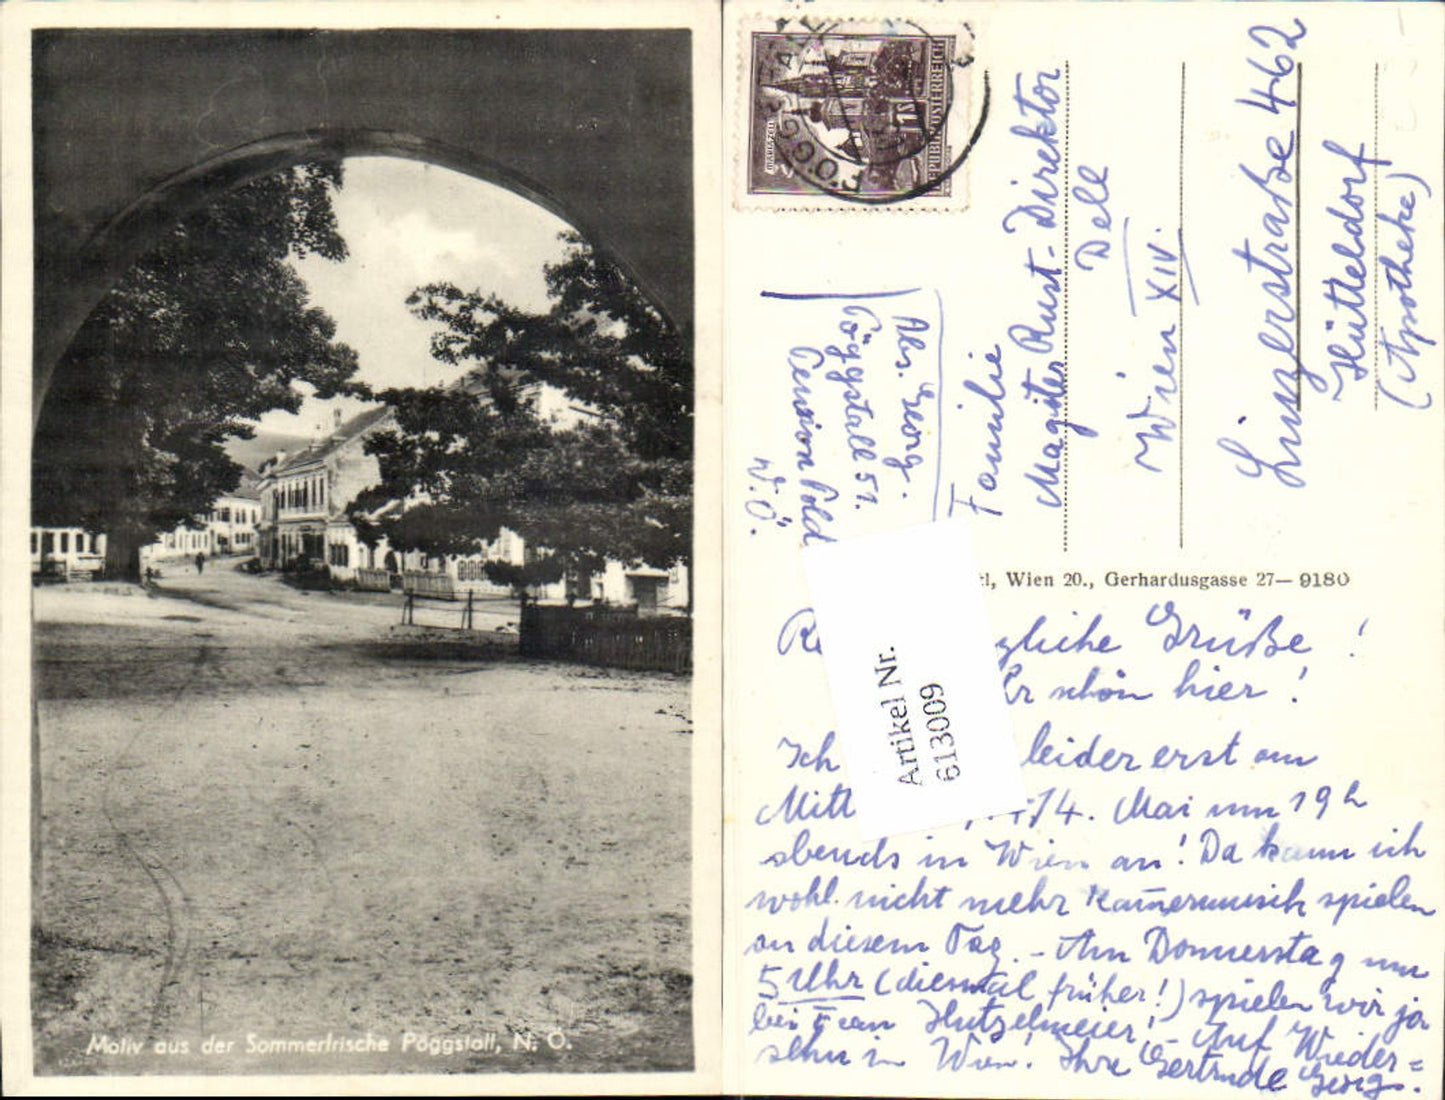 Motiv aus der Sommerfrische Pöggstall, N. Ö.
REPUBLIK ÖSTERREICH
PÖGGSTALL
Abs. Georg.
Pöggstall 51.
Pension Pold
N.Ö.
Familie
Magister Rust-Direktor
Dell
Wien XIV.
Linzerstraße 462
Hütteldorf
(Apotheke)
l, Wien 20., Gerhardusgasse 27— 9180
Artikel Nr.
613009
zliche Grüße!
r schön hier!
Ich leider erst am
Mitt 14. Mai um 19h
abends in Wien an! Da kann ich
wohl nicht mehr Kam̄ermusik spielen
an diesem Tag. - Am Donnerstag um
5 Uhr (diesmal früher!) spielen wir ja
bei Frau Hutzelmeier! - Auf Wieder=
sehn in Wien! Ihre Gertrude Georg.